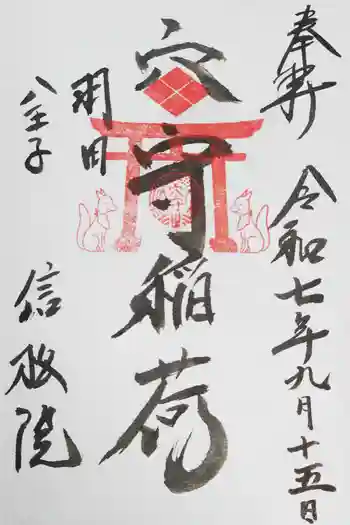 奉拝
令和七年九月十五日
穴守稲荷
羽田
八王子
信松院